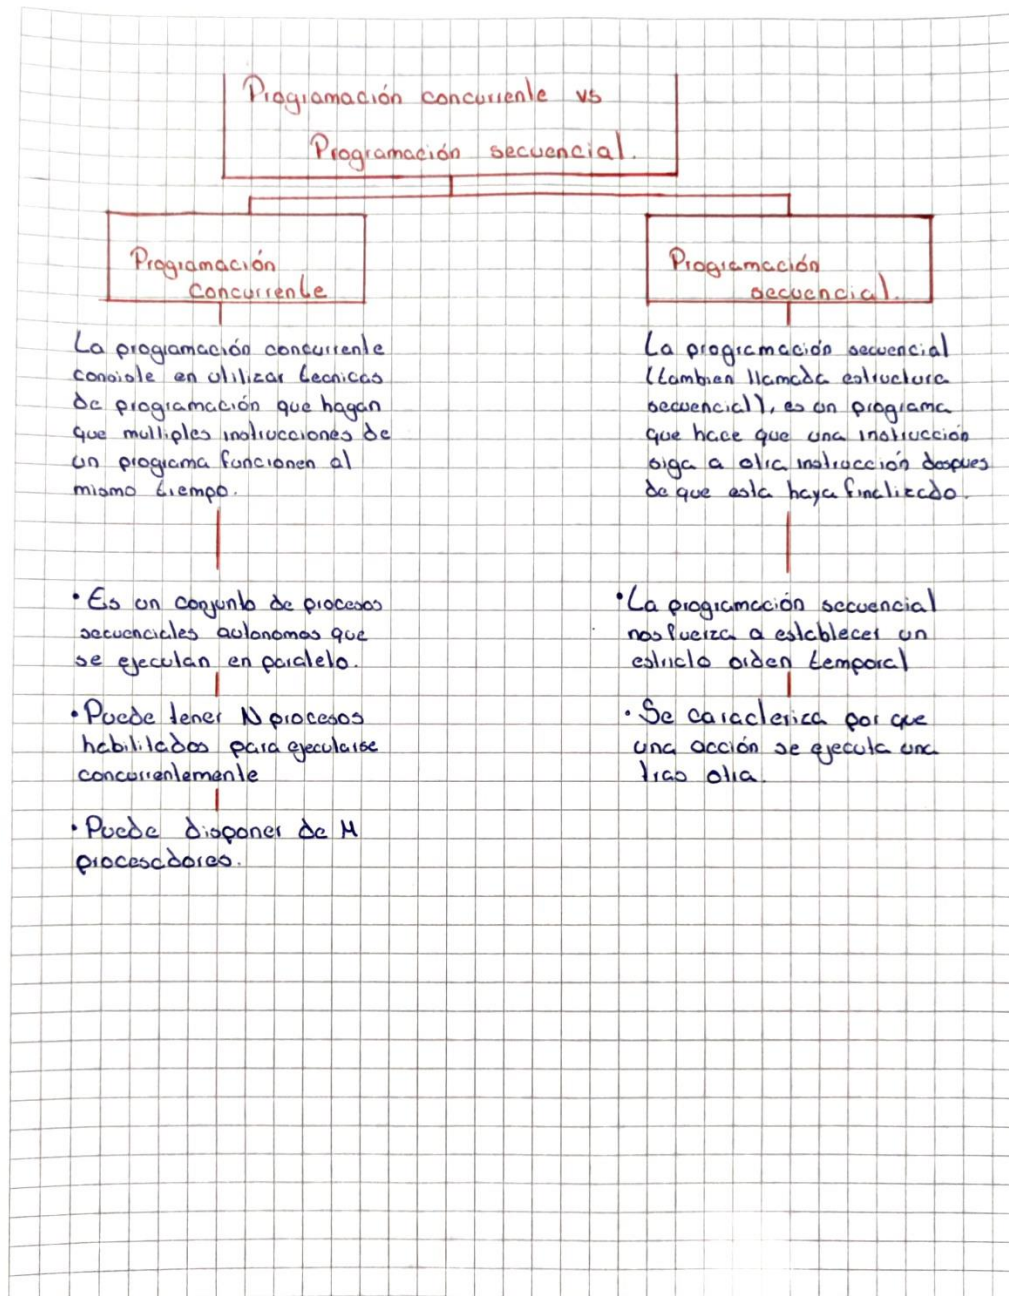 Programación concurrente vs
Programación secuencial.
Programación
concurrente
La programación concurrente
consiste en utilizar tecnicas
de programación que hagan
que multiples instrucciones de
un programa funcionen al
mismo tiempo.
• Es un conjunto de procesos
secuenciales autonomos que
se ejecutan en paralelo.
• Puede tener N procesos
habilitados para ejecutarse
concurrentemente
• Puede disponer de M
procesadores.
Programación
secuencial.
La programación secuencial
(tambien llamada estructura
secuencial), es un programa
que hace que una instrucción
siga a otra instrucción despues
de que esta haya finalizado.
• La programación secuencial
nos fuerza a establecer un
estricto orden temporal
• Se caracteriza por que
una acción se ejecuta una
tras otra.